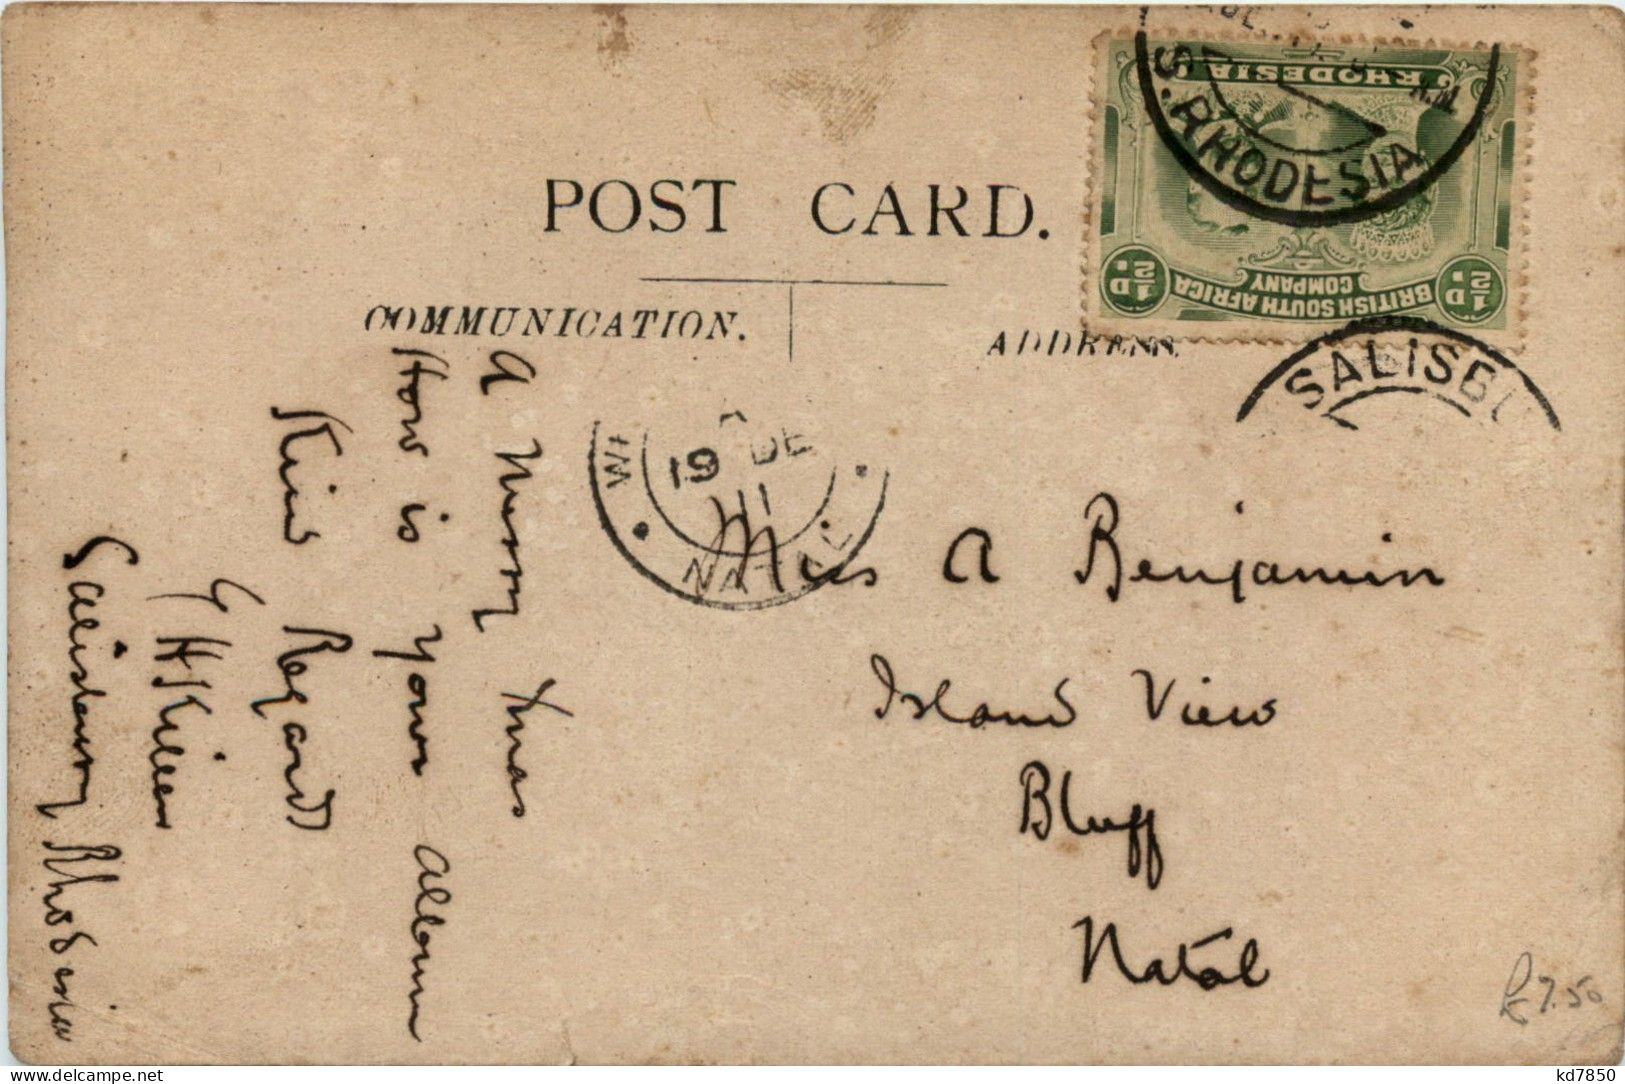 POST CARD.
COMMUNICATION.
ADDRESS.
RHODESIA
½D
BRITISH SOUTH AFRICA
COMPANY
½D
S. RHODESIA
SALISBU
19 DE
11
NATAL
A Merry Xmas
How is your album
Kind Regards
G H Killeen
Salisbury Rhodesia
Miss A Benjamin
Island View
Bluff
Natal
£7.50
kd7850